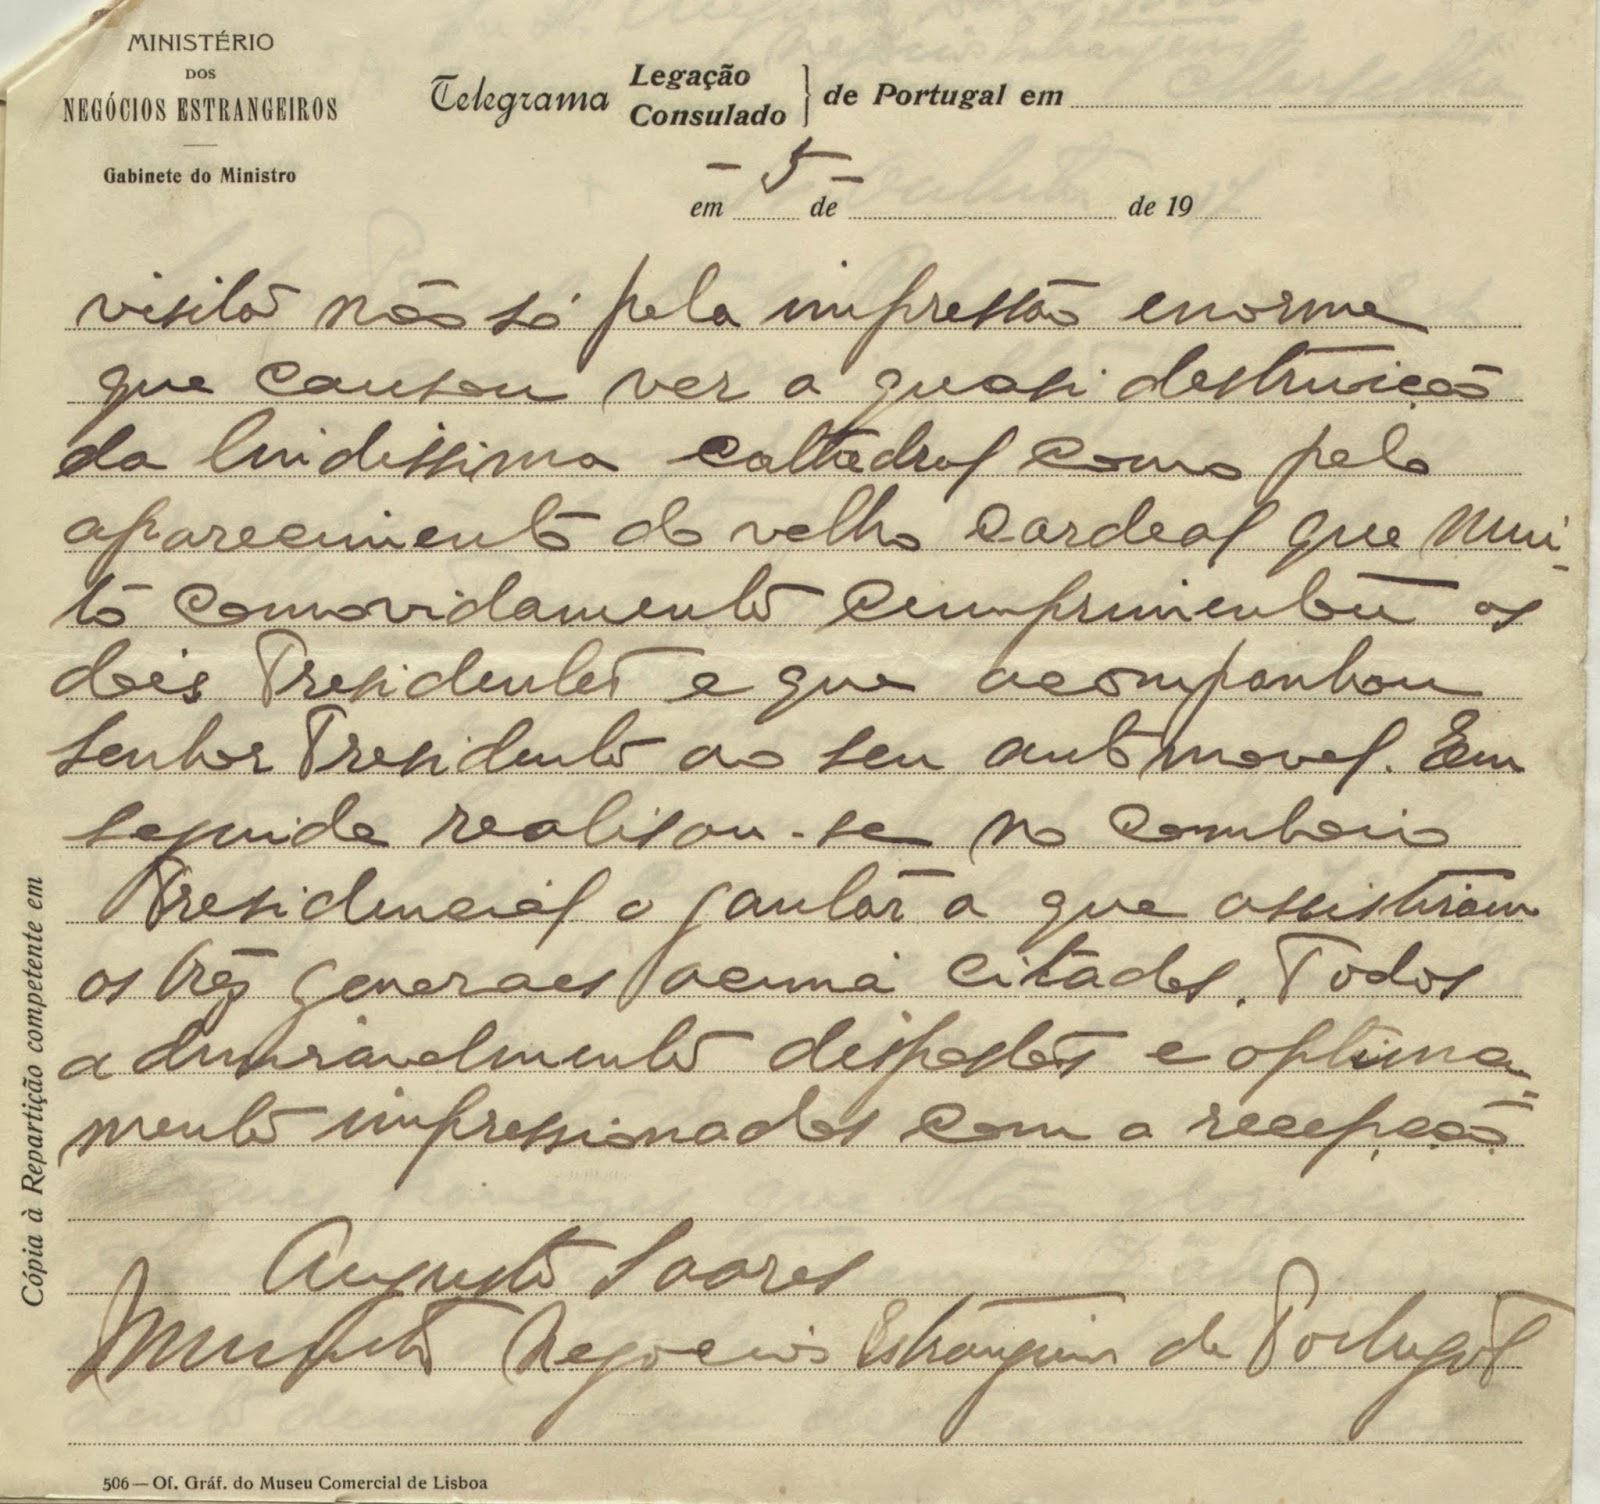 MINISTÉRIO
DOS
NEGÓCIOS ESTRANGEIROS
Gabinete do Ministro
Telegrama Legação Consulado } de Portugal em
— 5 —
em de de 19
visita não só pela impressão enorme
que causou ver a quasi destruição
da lindissima cathedral como pelo
aparecimento do velho Cardeal que mui-
to comovidamente cumprimentou os
dois Presidentes e que acompanhou
senhor Presidente ao seu automovel. Em
seguida realisou-se no comboio
Presidencial o jantar a que assistiram
os três generaes acima citados. Todos
admiravelmente dispostos e optima-
mente impressionados com a recepção
Augusto Soares
Ministro Negocios Estrangeiros de Portugal
Cópia à Repartição competente em
506 — Of. Gráf. do Museu Comercial de Lisboa